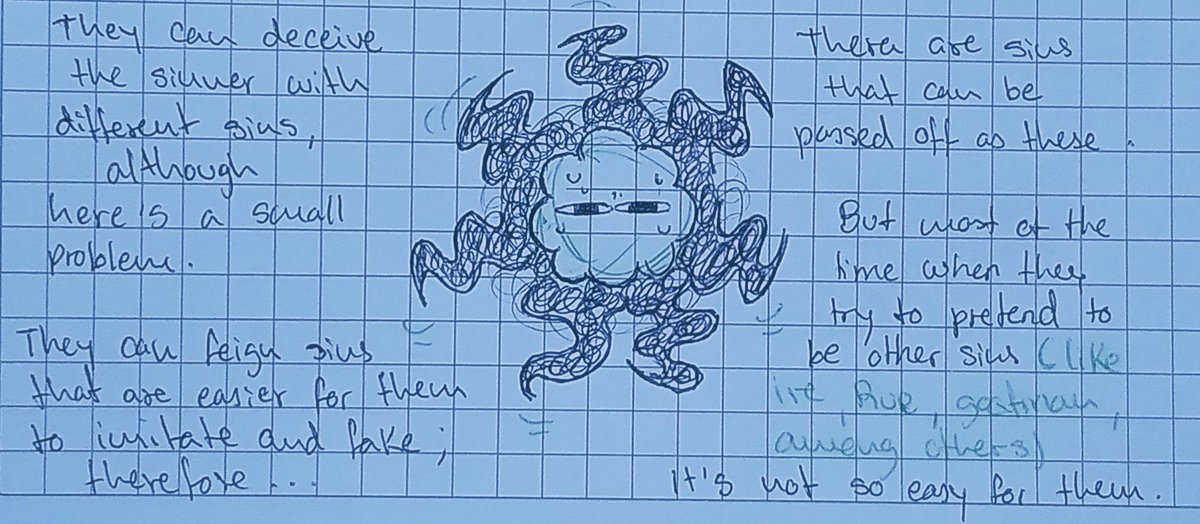 They can deceive
the sinner with
different sins,
although
here is a small
problem.
They can feign sins
that are easier for them
to imitate and fake;
therefore...
There are sins
that can be
passed off as these.
But most of the
time when they
try to pretend to
be other sins (like
ire,
among others)
It's not so easy for them.